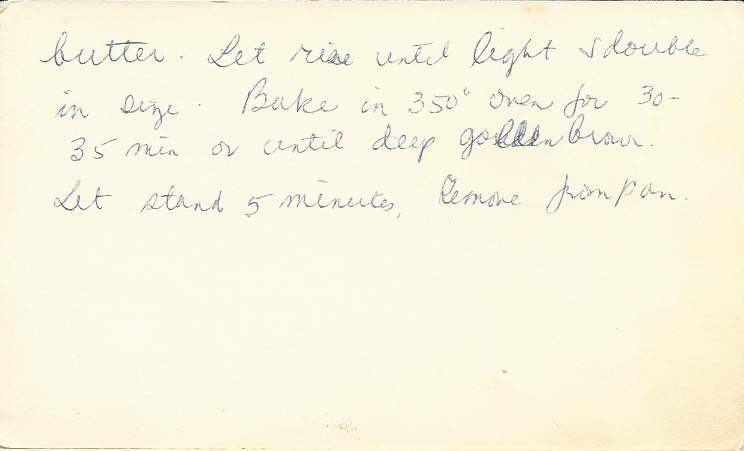 butter. Let rise until light & double
in size. Bake in 350° oven for 30-
35 min or until deep golden brown.
Let stand 5 minutes, Remove from pan.